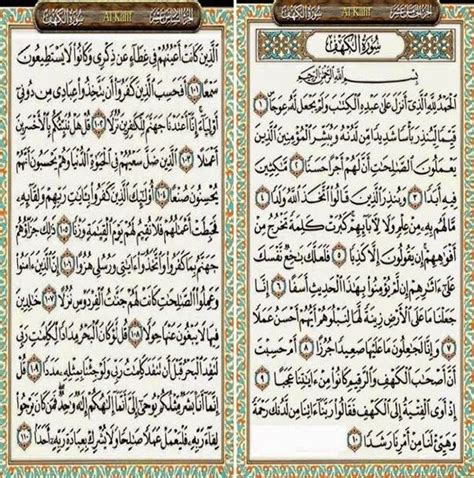 سُورَةُ الكَهْفِ Al-Kahf الجزء الخامس عشر
سُورَةُ الكَهْفِ
بِسْمِ ٱللَّهِ ٱلرَّحْمَٰنِ ٱلرَّحِيمِ
ٱلْحَمْدُ لِلَّهِ ٱلَّذِىٓ أَنزَلَ عَلَىٰ عَبْدِهِ ٱلْكِتَٰبَ وَلَمْ يَجْعَل لَّهُۥ عِوَجَا ۜ ١
قَيِّمًا لِّيُنذِرَ بَأْسًا شَدِيدًا مِّن لَّدُنْهُ وَيُبَشِّرَ ٱلْمُؤْمِنِينَ ٱلَّذِينَ
يَعْمَلُونَ ٱلصَّٰلِحَٰتِ أَنَّ لَهُمْ أَجْرًا حَسَنًا ٢ مَّٰكِثِينَ
فِيهِ أَبَدًا ٣ وَيُنذِرَ ٱلَّذِينَ قَالُوا۟ ٱتَّخَذَ ٱللَّهُ وَلَدًا ٤
مَّا لَهُم بِهِۦ مِنْ عِلْمٍ وَلَا لِءَابَآئِهِمْ ۚ كَبُرَتْ كَلِمَةً تَخْرُجُ مِنْ
أَفْوَٰهِهِمْ ۚ إِن يَقُولُونَ إِلَّا كَذِبًا ٥ فَلَعَلَّكَ بَٰخِعٌ نَّفْسَكَ
عَلَىٰٓ ءَاثَٰرِهِمْ إِن لَّمْ يُؤْمِنُوا۟ بِهَٰذَا ٱلْحَدِيثِ أَسَفًا ٦ إِنَّا
جَعَلْنَا مَا عَلَى ٱلْأَرْضِ زِينَةً لَّهَا لِنَبْلُوَهُمْ أَيُّهُمْ أَحْسَنُ عَمَلًا
٧ وَإِنَّا لَجَٰعِلُونَ مَا عَلَيْهَا صَعِيدًا جُرُزًا ٨ أَمْ حَسِبْتَ
أَنَّ أَصْحَٰبَ ٱلْكَهْفِ وَٱلرَّقِيمِ كَانُوا۟ مِنْ ءَايَٰتِنَا عَجَبًا ٩
إِذْ أَوَى ٱلْفِتْيَةُ إِلَى ٱلْكَهْفِ فَقَالُوا۟ رَبَّنَآ ءَاتِنَا مِن لَّدُنكَ رَحْمَةً
وَهَيِّئْ لَنَا مِنْ أَمْرِنَا رَشَدًا ١٠
سُورَةُ الكَهْفِ Al-Kahf الجزء السادس عشر
ٱلَّذِينَ كَانَتْ أَعْيُنُهُمْ فِى غِطَآءٍ عَن ذِكْرِى وَكَانُوا۟ لَا يَسْتَطِيعُونَ
سَمْعًا ١٠١ أَفَحَسِبَ ٱلَّذِينَ كَفَرُوٓا۟ أَن يَتَّخِذُوا۟ عِبَادِى مِن دُونِىٓ
أَوْلِيَآءَ ۚ إِنَّآ أَعْتَدْنَا جَهَنَّمَ لِلْكَٰفِرِينَ نُزُلًا ١٠٢ قُلْ هَلْ نُنَبِّئُكُم بِٱلْأَخْسَرِينَ
أَعْمَٰلًا ١٠٣ ٱلَّذِينَ ضَلَّ سَعْيُهُمْ فِى ٱلْحَيَوٰةِ ٱلدُّنْيَا وَهُمْ يَحْسَبُونَ أَنَّهُمْ
يُحْسِنُونَ صُنْعًا ١٠٤ أُو۟لَٰٓئِكَ ٱلَّذِينَ كَفَرُوا۟ بِـَٔايَٰتِ رَبِّهِمْ وَلِقَآئِهِۦ
فَحَبِطَتْ أَعْمَٰلُهُمْ فَلَا نُقِيمُ لَهُمْ يَوْمَ ٱلْقِيَٰمَةِ وَزْنًا ١٠٥ ذَٰلِكَ جَزَآؤُهُمْ
جَهَنَّمُ بِمَا كَفَرُوا۟ وَٱتَّخَذُوٓا۟ ءَايَٰتِى وَرُسُلِى هُزُوًا ١٠٦ إِنَّ ٱلَّذِينَ ءَامَنُوا۟
وَعَمِلُوا۟ ٱلصَّٰلِحَٰتِ كَانَتْ لَهُمْ جَنَّٰتُ ٱلْفِرْدَوْسِ نُزُلًا ١٠٧ خَٰلِدِينَ
فِيهَا لَا يَبْغُونَ عَنْهَا حِوَلًا ١٠٨ قُل لَّوْ كَانَ ٱلْبَحْرُ مِدَادًا لِّكَلِمَٰتِ رَبِّى
لَنَفِدَ ٱلْبَحْرُ قَبْلَ أَن تَنفَدَ كَلِمَٰتُ رَبِّى وَلَوْ جِئْنَا بِمِثْلِهِۦ مَدَدًا ١٠٩ قُلْ
إِنَّمَآ أَنَا۠ بَشَرٌ مِّثْلُكُمْ يُوحَىٰٓ إِلَىَّ أَنَّمَآ إِلَٰهُكُمْ إِلَٰهٌ وَٰحِدٌ ۖ فَمَن كَانَ يَرْجُوا۟
لِقَآءَ رَبِّهِۦ فَلْيَعْمَلْ عَمَلًا صَٰلِحًا وَلَا يُشْرِكْ بِعِبَادَةِ رَبِّهِۦٓ أَحَدًۢا ١١٠